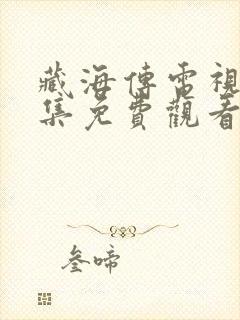 藏海傳電視
集免費觀看
叁啼